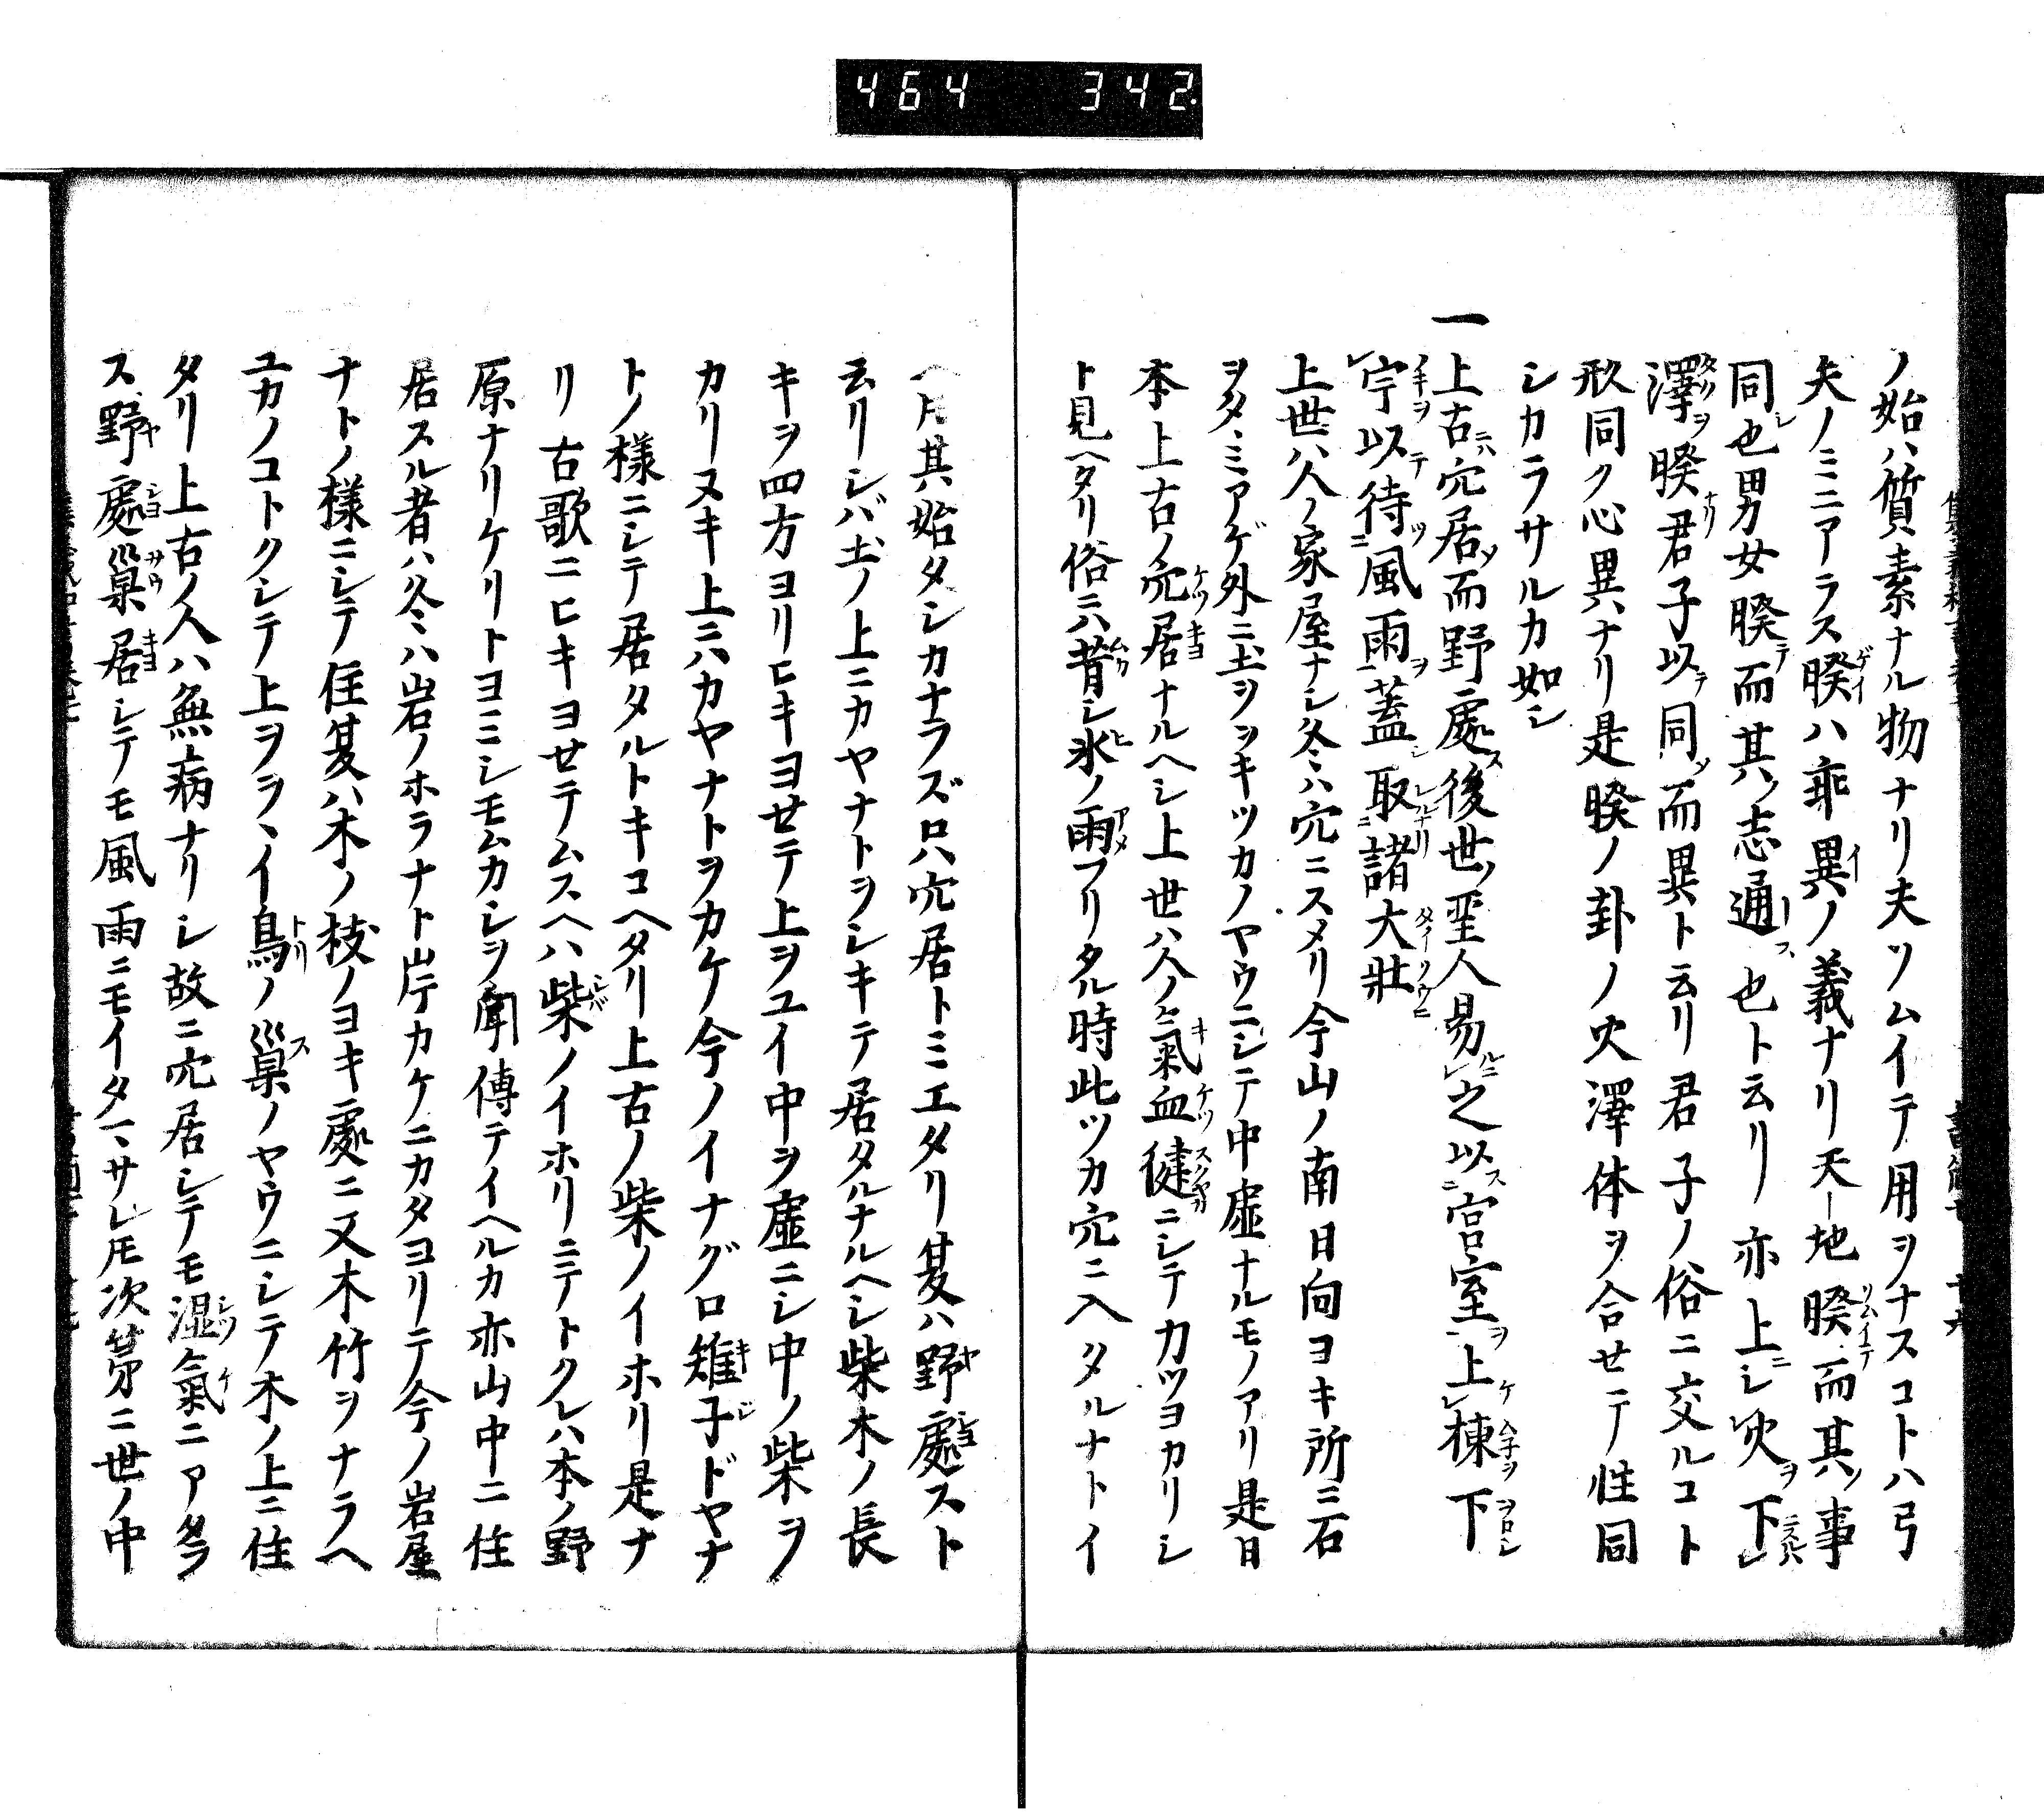 464 342.
ノ始ハ質素ナル物ナリ夫ソムイテ用ヲナスコトハ弓
矢ノミニアラス睽ハ乖異ノ義ナリ天地睽而其ノ事
同也男女睽而其ノ志通也ト云リ亦上火下
澤睽君子以同而異ト云リ君子ノ俗ニ交ルコト
形同ク心異ナリ是睽ノ卦ノ火澤体ヲ合セテ性同
シカラサルカ如シ
一上古穴居而野處後世聖人易之以宮室上棟下
宇以待風雨蓋取諸大壯
上世ハ人ノ家屋ナシ冬ハ穴ニスメリ今山ノ南日向ヨキ所ニ石
ヲタヽミアゲ外ニ土ヲツキツカノヤウニシテ中虚ナルモノアリ是日
本上古ノ穴居ナルヘシ上世ハ人ノ氣血健ニシテ力ツヨカリシ
ト見ヘタリ俗ニ昔シ氷ノ雨フリタル時此ツカ穴ニ入タルナトイ
ヘ𪜈其始タシカナラズ只穴居トミエタリ夏ハ野處スト
云リシバ土ノ上ニカヤナトヲシキテ居タルナルヘシ柴木ノ長
キヲ四方ヨリヒキヨセテ上ヲユイ中ヲ虚ニシ中ノ柴ヲ
カリヌキ上ニハカヤナトヲカケ今ノイナグロ雉子ドヤナ
トノ様ニシテ居タルトキコヘタリ上古ノ柴ノイホリ是ナ
リ古歌ニヒキヨセテムスヘハ柴ノイホリニテトクレハ本ノ野
原ナリケリトヨミシモムカシヲ聞傳テイヘルカ亦山中ニ住
居スル者ハ冬ハ岩ノホラナト岸カケニカタヨリテ今ノ岩屋
ナトノ様ニシテ住夏ハ木ノ枝ノヨキ處ニ又木竹ヲナラヘ
ユカノコトクシテ上ヲヲヽイ鳥ノ巣ノヤウニシテ木ノ上ニ住
タリ上古ノ人ハ無病ナリシ故ニ穴居シテモ湿氣ニアタラ
ス野處巣居シテモ風雨ニモイタマサレ𪜈次第ニ世ノ中